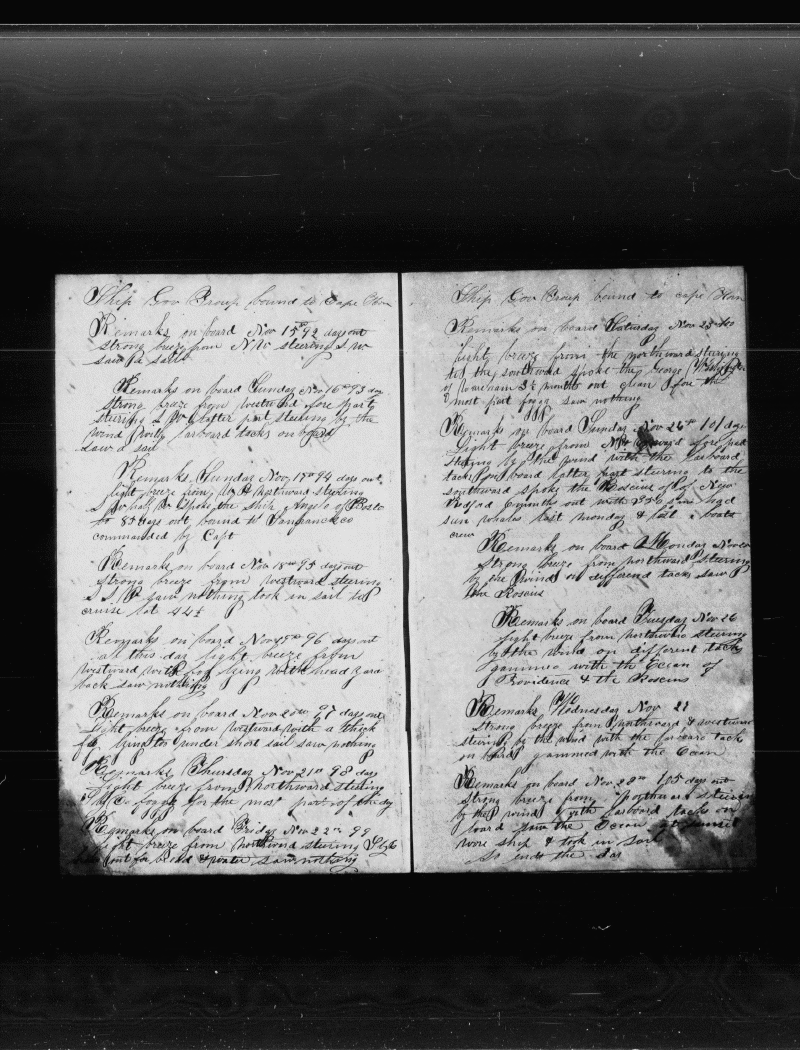 Ship Gov Troup bound to Cape Horn
Remarks on board Nov 15th 92 days out
strong breeze from N W steering S W
saw a sail
Remarks on board Sunday Nov 16th 93 day
strong breze from westward fore part
steering S W latter part steering by the
wind with larboard tacks on board
saw a sail
Remarks Sunday Nov 17th 94 days out
light breeze from westward steering
S spoke the ship Angelo of Bosto
85 days out bound to Sanfrancisco
commanded by Capt
Remarks on board Nov 18th 95 days out
strong breeze from westward steering
S S W saw nothing took in sail to
cruise lat 44
Remarks on board Nov 19th 96 days out
all this day light breeze from
westward with fog lying with head yard
back saw nothing
Remarks on board Nov 20th 97 days out
light breeze from westward with a thick
fog lying to under short sail saw nothing
Remarks Thursday Nov 21st 98 day
light breeze from northward stering
foggy for the most part of the dy
Remarks on board Friday Nov 22nd 99
light breeze from northward steering
out for and water saw nothing
Ship Gov Troup bound to cape Horn
Remarks on board Saturday Nov 25 100
light breeze from the northward steering
to the southward spoke the George Washington
of Wareham 3½ months out clean fore the
most part foggy saw nothing
Remarks on board Sunday Nov 26th 101 days
Light breeze from fore part
steering by the wind with the larboard
tacks on board latter part steering to the
southward spoke the Roscius of New
Bedford months out with had
seen whales last monday & lost a boats
crew
Remarks on board Monday Nov
strong breeze from northward steering
by the wind on different tacks saw
the Roscius
Remarks on board Tuesday Nov 26
light breeze from northward steering
by the wind on different tacks
gammed with the Ocean of
Providence & the Roscius
Remarks Wednesday Nov 27
strong breeze from northward & westward
steering by the wind with the larboard tack
on board gammed with the Ocean
Remarks on board Nov 28th 105 days out
strong breeze from northward steering
by the wind with larboard tacks on
board saw the Ocean at sunset
wore ship & took in sail
so ends the day